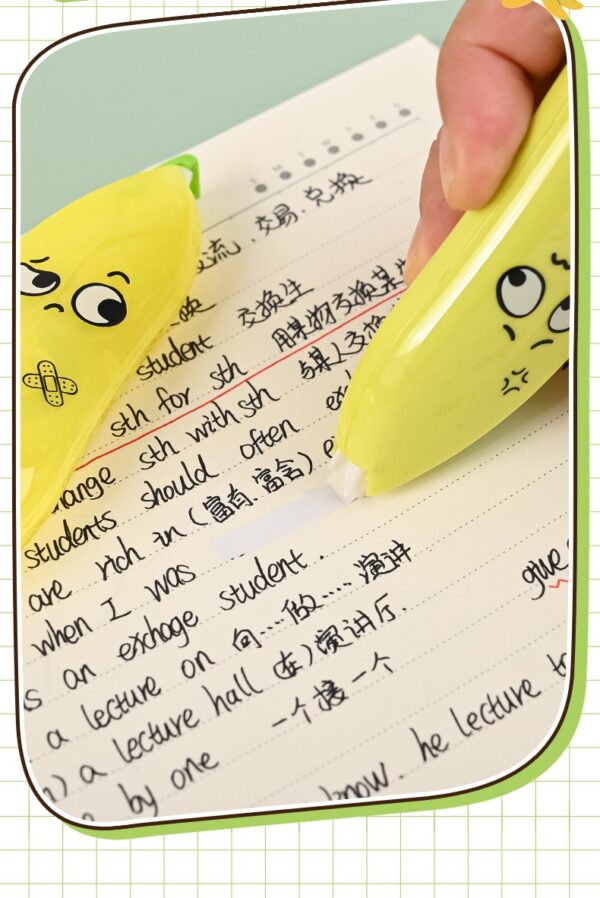 S M T W T F S
交流.交易.兑换
换 交换生
student 用某物交换某
sth for sth 与某人交换
change sth with sth
students should often
are rich in (富有.富含)
when I was
s an exchage student.
a lecture on 向...做.....演讲
n) a lecture hall (在)演讲厅.
by one 一个接一个
know. he lecture to
give